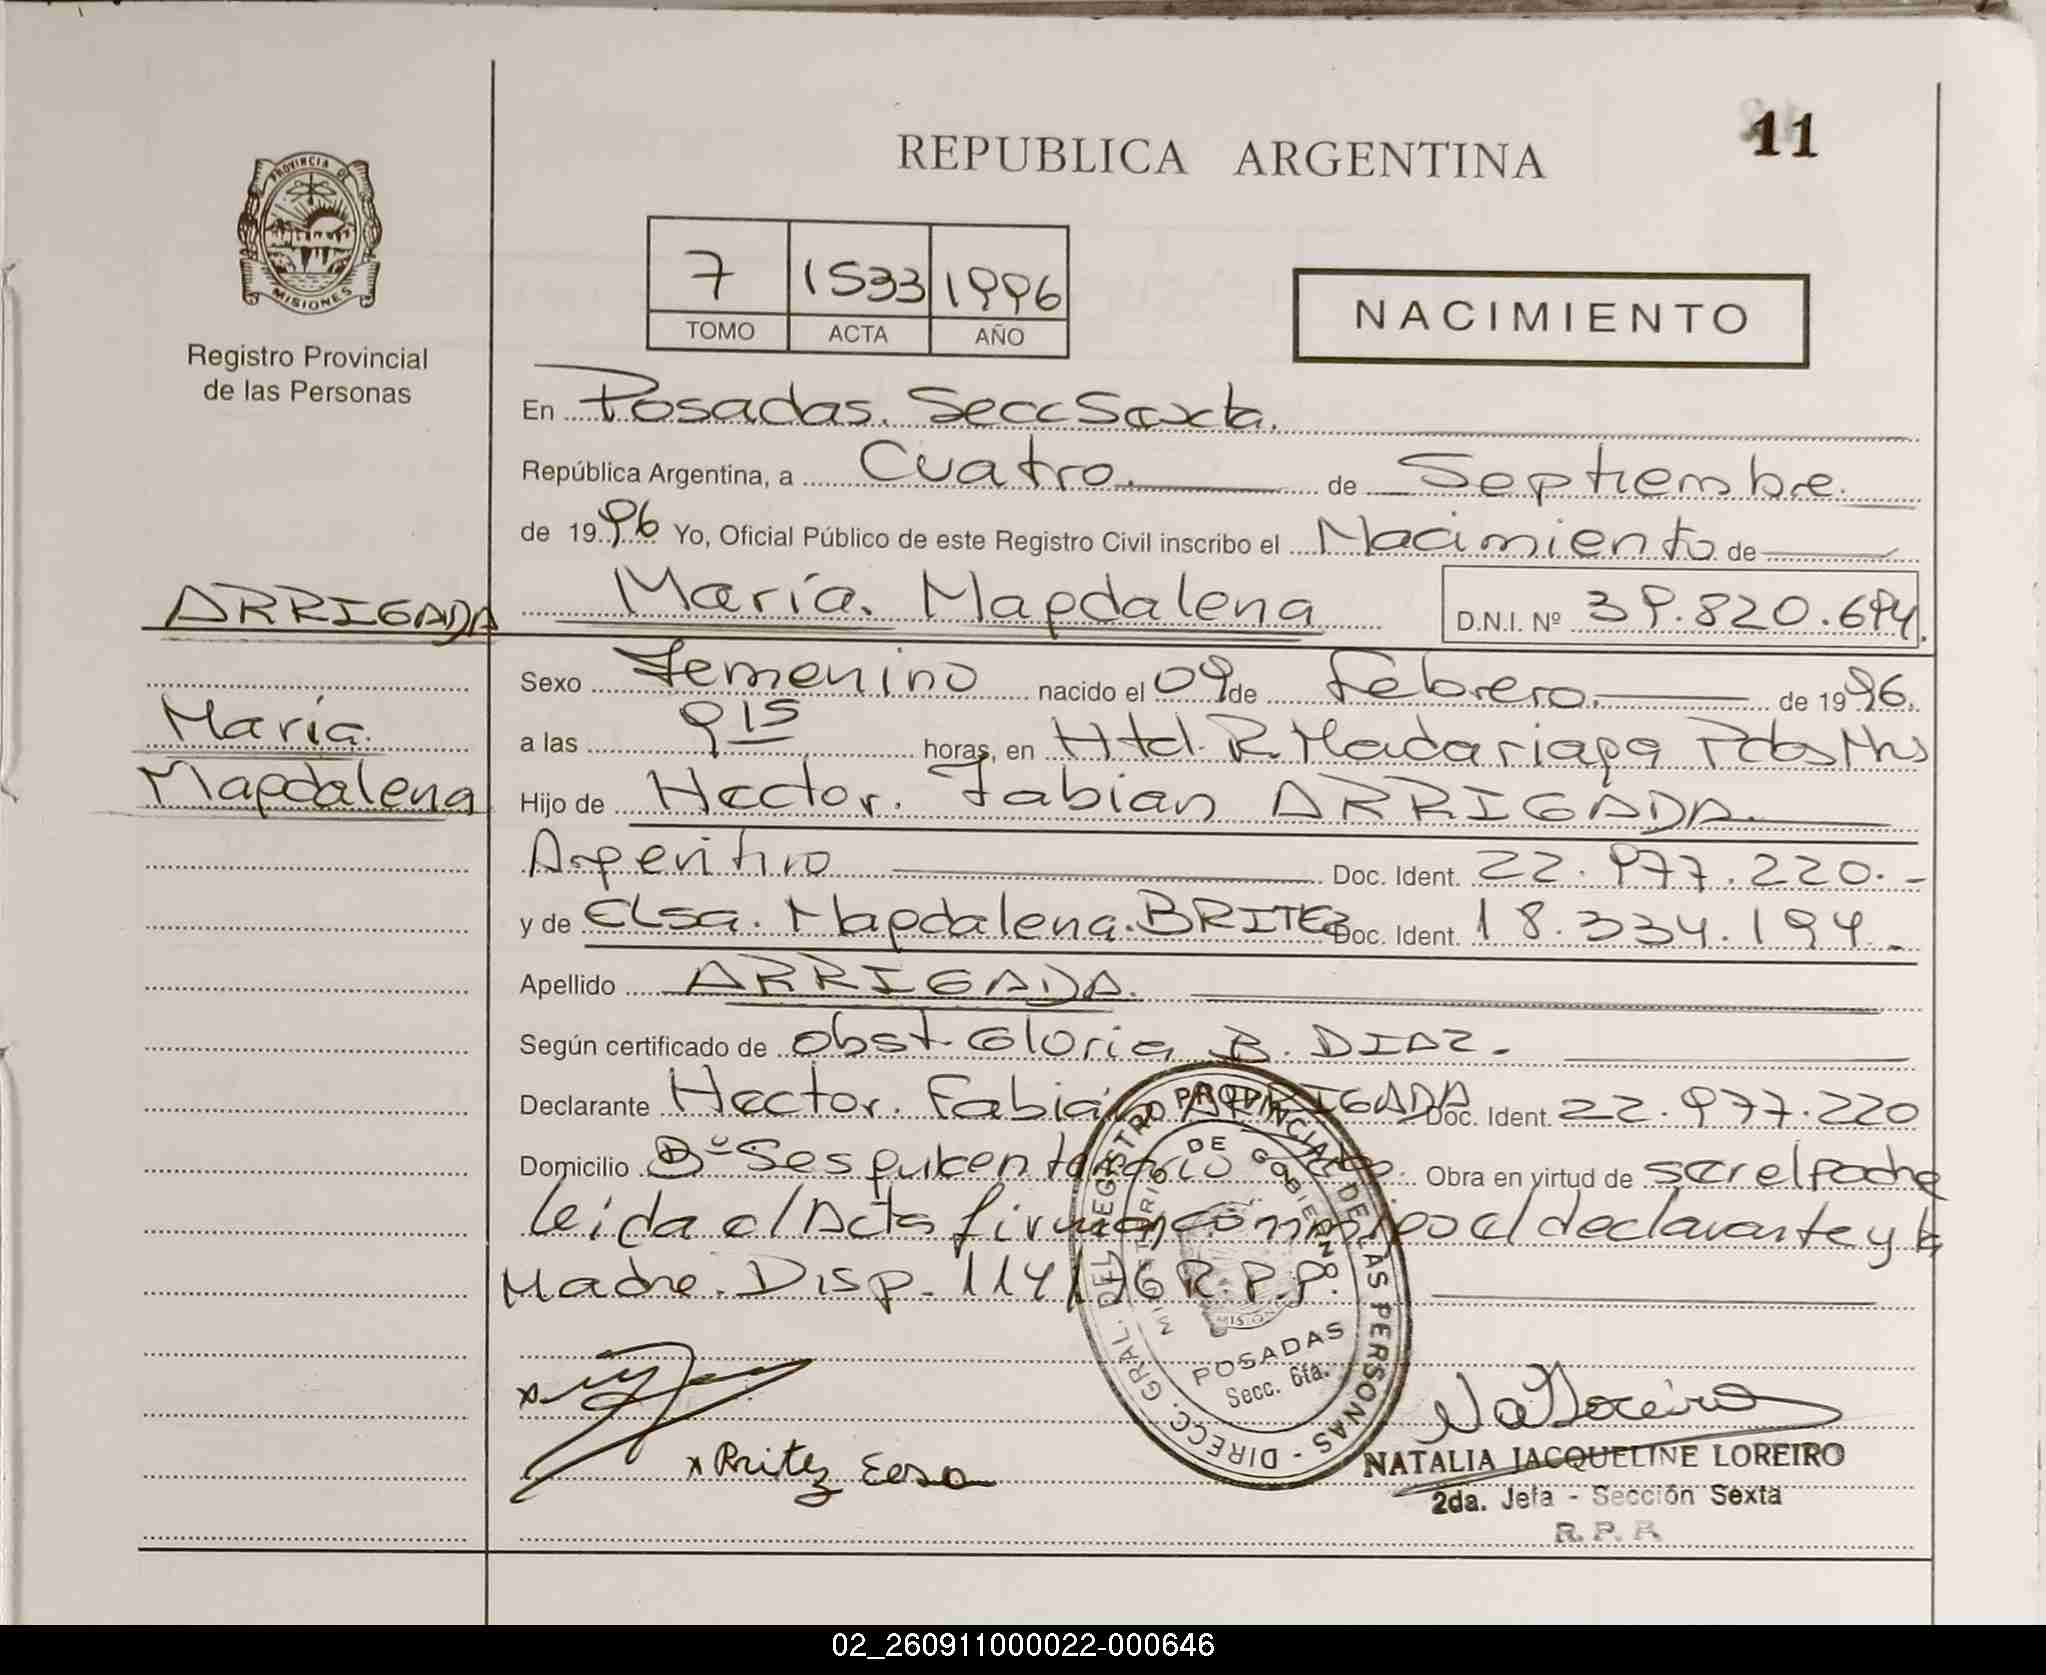 11
REPUBLICA ARGENTINA
PROVINCIA DE
MISIONES
Registro Provincial
de las Personas
7 1533 1996
TOMO ACTA AÑO
NACIMIENTO
En Posadas. Secc Sexta.
República Argentina, a Cuatro. de Septiembre.
de 1996 Yo, Oficial Público de este Registro Civil inscribo el Nacimiento de
ARRIGADA
María. Magdalena D.N.I. Nº 39.820.694.
Sexo Femenino nacido el 09 de Febrero. de 1996.
María.
a las 9 15 horas, en Htal. R. Madariaga Pdas Mns
Magdalena
Hijo de Hector. Fabian ARRIGADA.
Argentino Doc. Ident. 22.977.220.-
y de Elsa. Magdalena. BRITEZ Doc. Ident. 18.334.194.-
Apellido ARRIGADA.
Según certificado de Obst. Gloria B. DIAZ.-
Declarante Hector. Fabián ARRIGADA Doc. Ident. 22.977.220
Domicilio Bº Sesquicentenario Obra en virtud de ser el padre
leida el Acta firman conmigo el declarante y la
Madre. Disp. 114/96 R.P.P.
DIRECC. GRAL. DEL REGISTRO PROVINCIAL DE LAS PERSONAS -
MINISTERIO DE GOBIERNO
POSADAS
Secc. 6ta.
x Britez Elsa
NATALIA JACQUELINE LOREIRO
2da. Jefa - Sección Sexta
R. P. P.
02_260911000022-000646